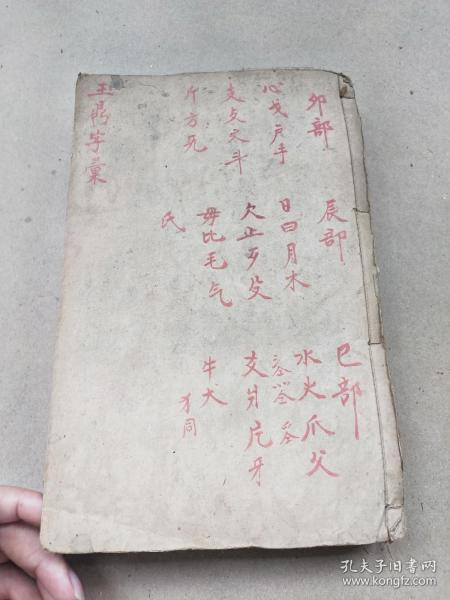 卯部
心戈户手
支攴文斗
斤方无
辰部
日曰月木
欠止歹殳
毋比毛气
氏
巳部
水火爪父
爻爿片牙
牛犬
犭同
玉堂字彙
孔夫子旧书网
www.kongfz.com